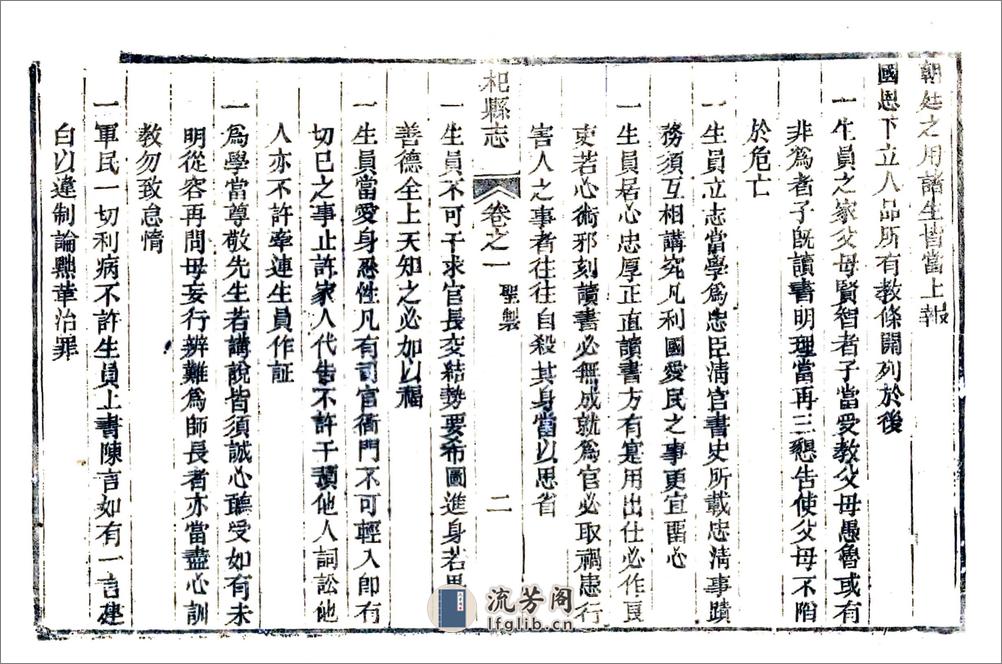 朝廷之用諸生皆當上報
國恩下立人品所有教條開列於後
一生員之家父母賢智者子當受教父母愚魯或有
非爲者子旣讀書明理當再三懇告使父母不陷
於危亡
一生員立志當學爲忠臣清官書史所載忠清事蹟
務須互相講究凡利國愛民之事更宜畱心
一生員居心忠厚正直讀書方有寔用出仕必作良
吏若心術邪刻讀書必無成就爲官必取禍患行
害人之事者往往自殺其身當以思省
杞縣志 卷之一 聖製 二
一生員不可干求官長交結勢要希圖進身若果
善德全上天知之必加以福
一生員當愛身忍性凡有司官衙門不可輕入即有
切已之事止許家人代告不許干預他人詞訟他
人亦不許牽連生員作証
一爲學當尊敬先生若講說皆須誠心聽受如有未
明從容再問毋妄行辨難爲師長者亦當盡心訓
教勿致怠惰
一軍民一切利病不許生員上書陳言如有一言建
白以違制論黜革治罪
流芳阁
lfglib.cn